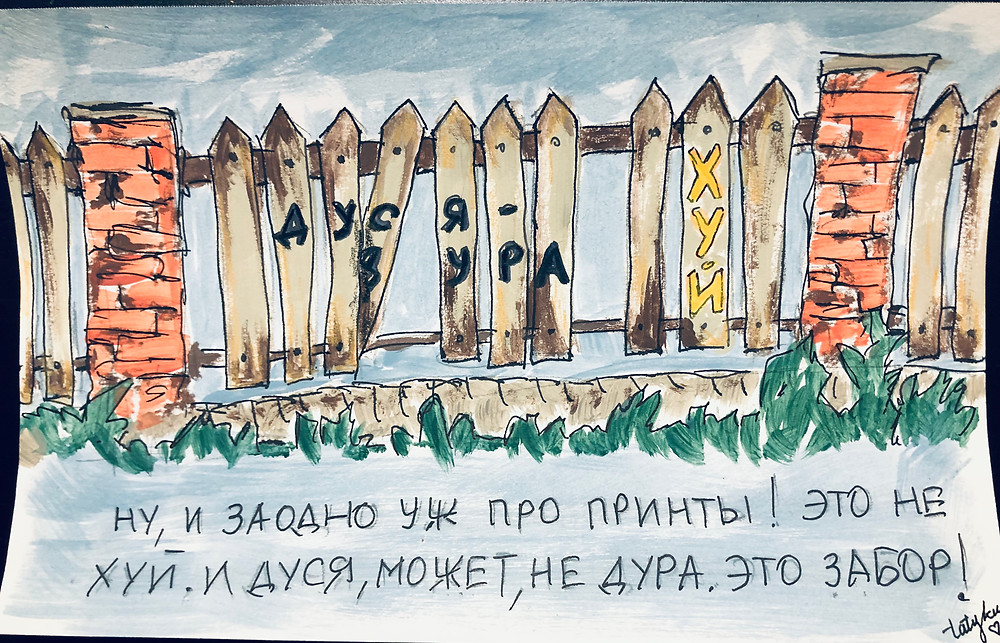 ДУСЯ -
ДУРА
ХУЙ
НУ, И ЗАОДНО УЖ ПРО ПРИНТЫ! ЭТО НЕ
ХУЙ. И ДУСЯ, МОЖЕТ, НЕ ДУРА. ЭТО ЗАБОР!